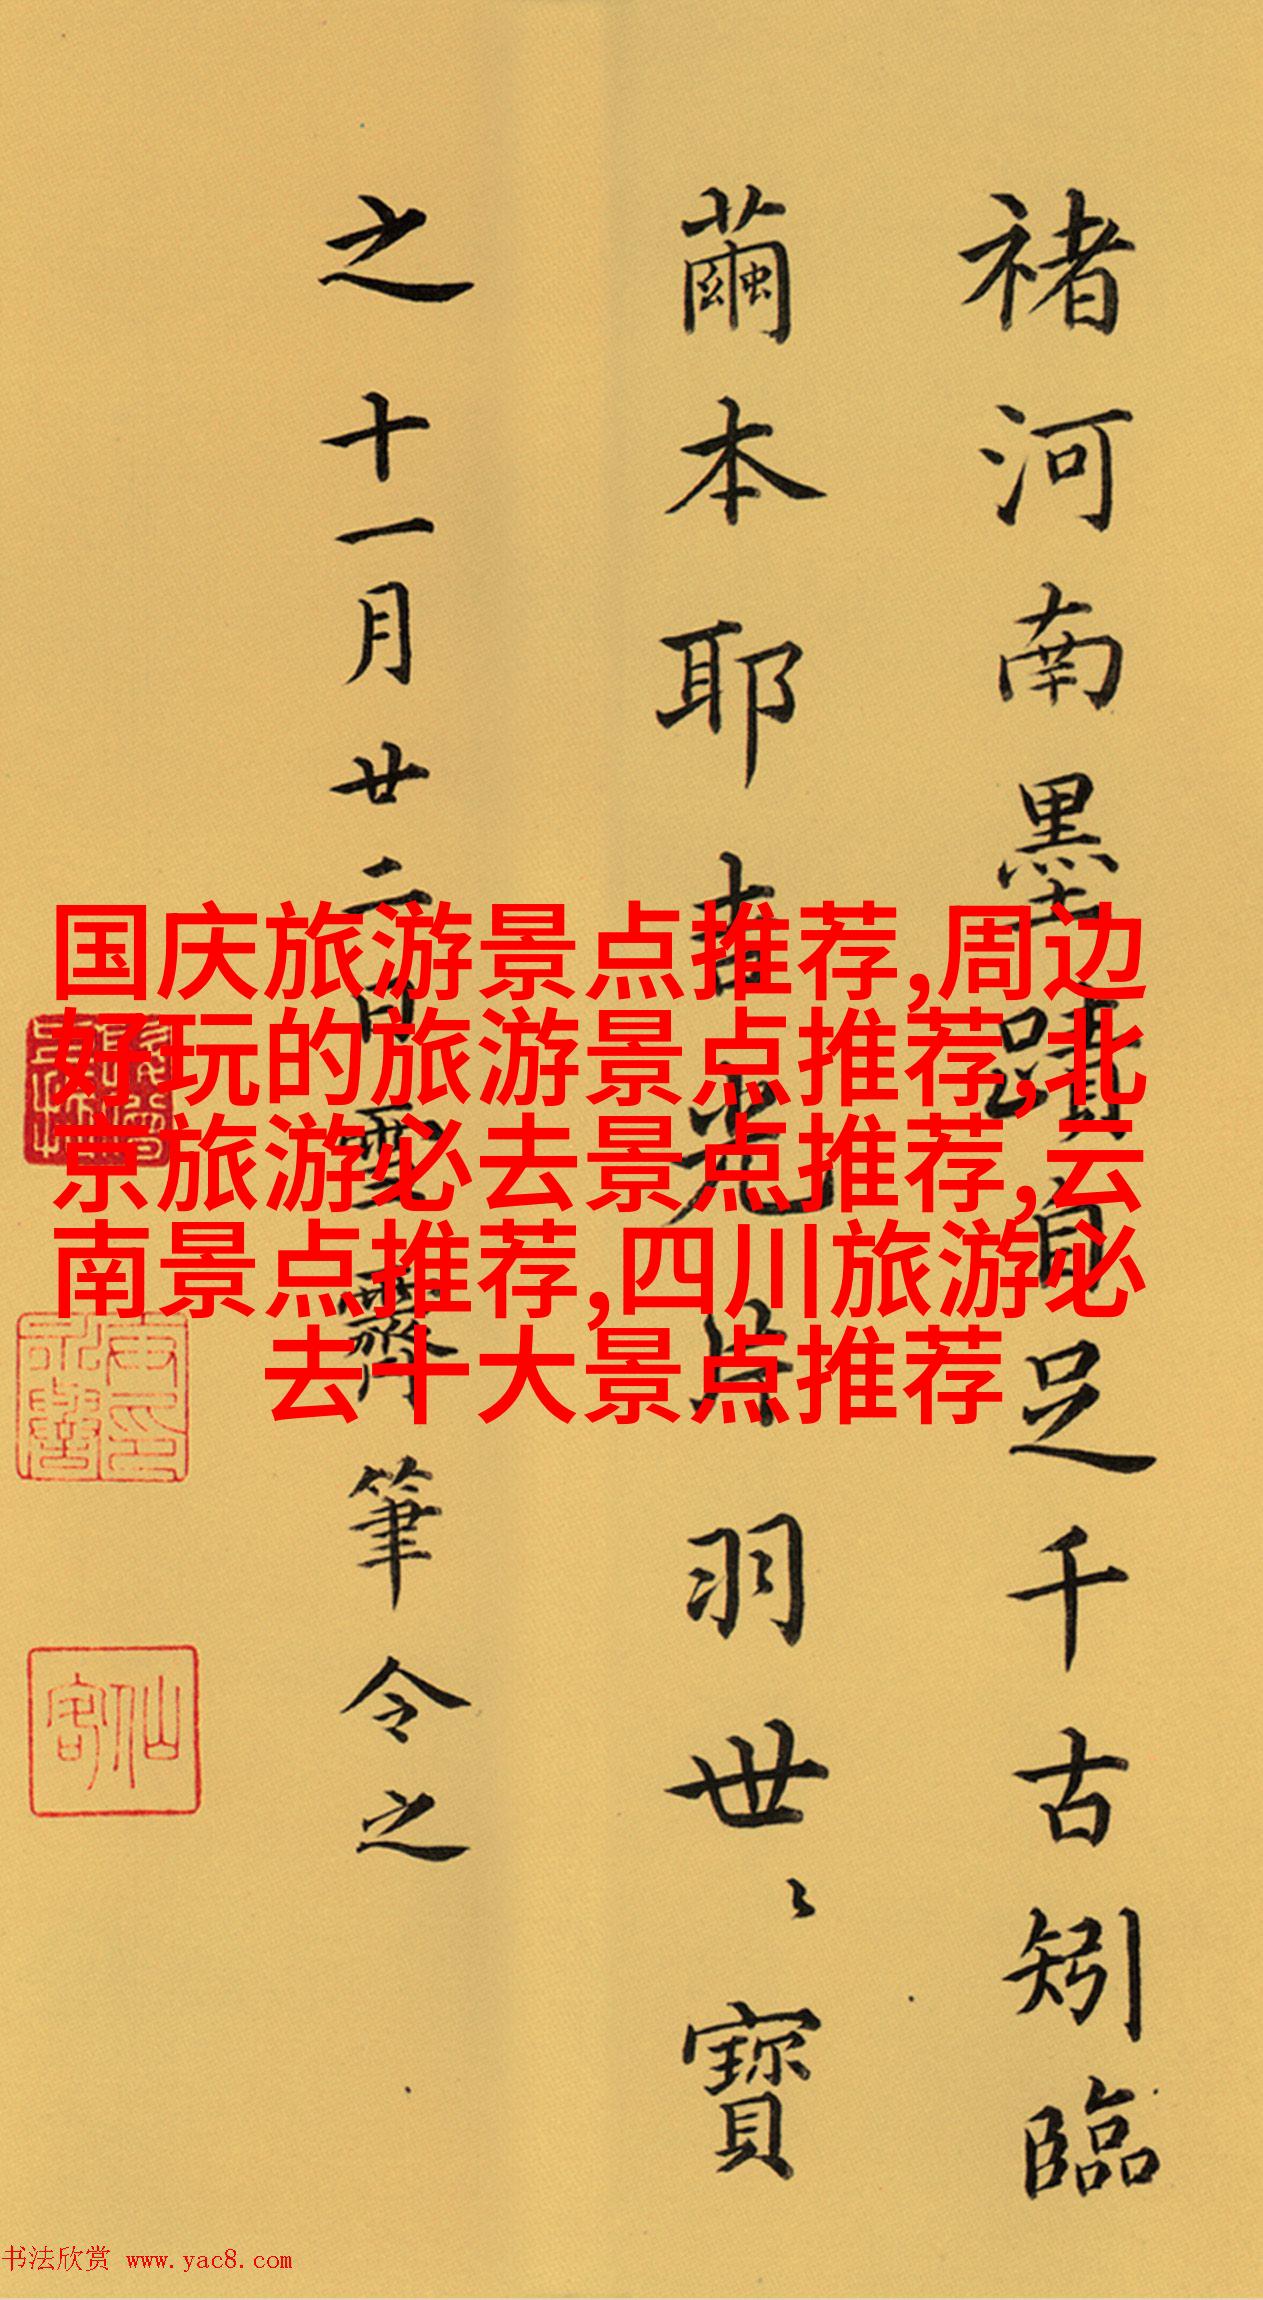 褚河南墨蹟自足千古矧臨
繭本耶吉光片羽世〻寶
之十一月廿二日雪霽筆令之
国庆旅游景点推荐,周边
好玩的旅游景点推荐,北
京旅游必去景点推荐,云
南景点推荐,四川旅游必
去十大景点推荐
仙客
书法欣赏 www.yac8.com